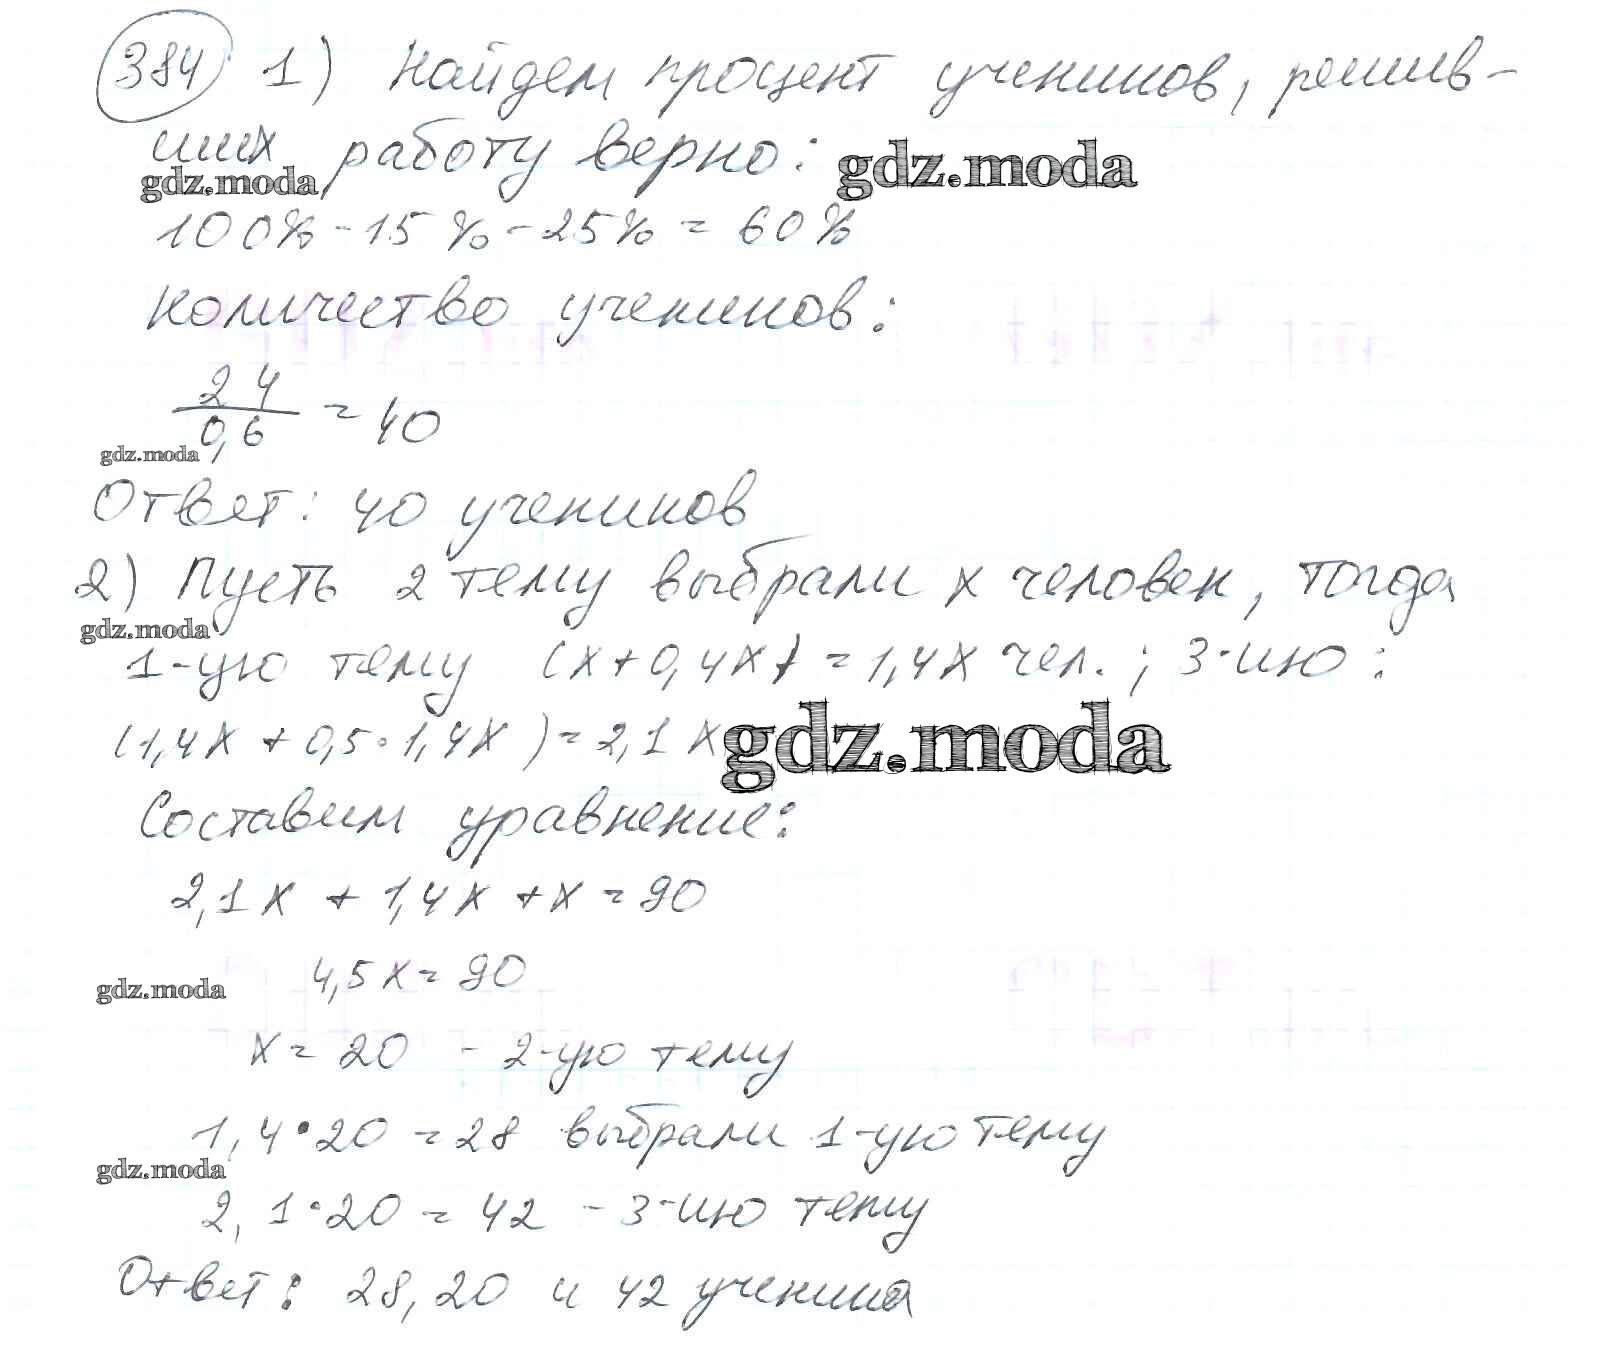 384 1) Найдем процент учеников, решив-
ших работу верно: gdz.moda
gdz.moda
100% - 15% - 25% = 60%
Количество учеников:
24/0,6 = 40
gdz.moda
Ответ: 40 учеников
2) Пусть 2 тему выбрали x человек, тогда
gdz.moda
1-ую тему (x + 0,4x) = 1,4x чел.; 3-ию:
(1,4x + 0,5·1,4x) = 2,1x gdz.moda
Составим уравнение:
2,1x + 1,4x + x = 90
4,5x = 90
gdz.moda
x = 20 - 2-ую тему
1,4·20 = 28 выбрали 1-ую тему
gdz.moda
2,1·20 = 42 - 3-ию тему
Ответ: 28, 20 и 42 ученика